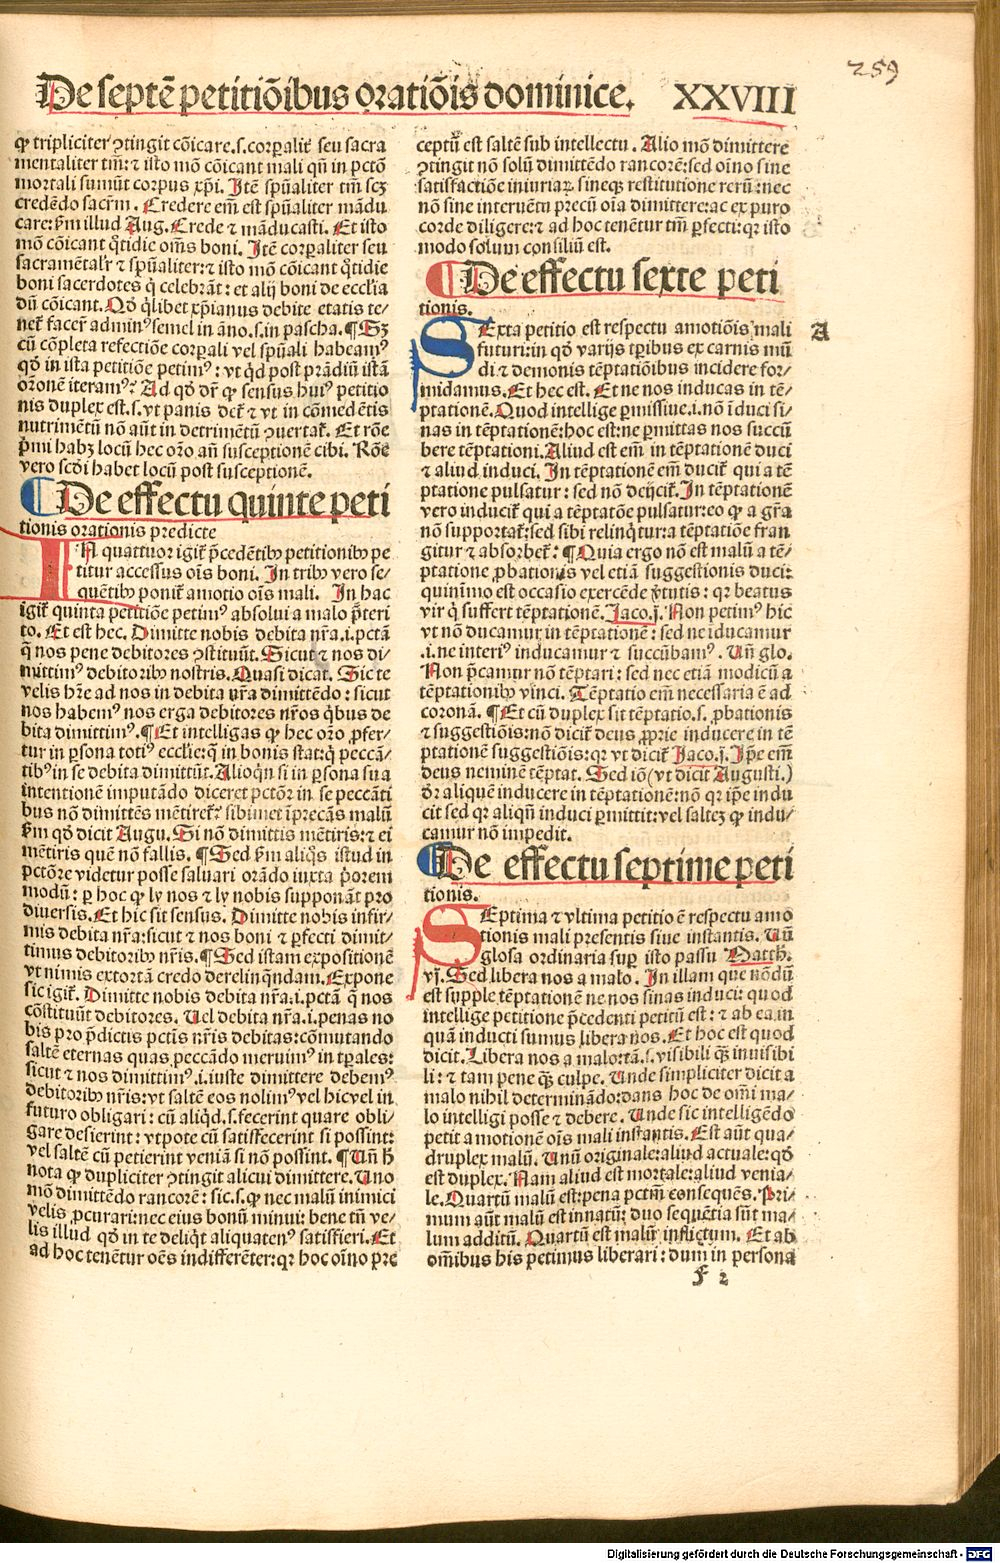 De septē petitiōibus oratiōis dominice. XXVIII
259
ꝙ tripliciter ꝯtingit cōicare.s.corꝑalit̄ seu sacra
mentaliter tm̄: ⁊ isto mō cōicant mali qn̄ in pctō
mortali sumūt corpus xp̄i. Itē spūaliter tm̄ scꝫ
credēdo sacrm̄. Credere em̄ est spūaliter mādu
care: ẜm illud Aug. Crede ⁊ māducasti. Et isto
mō cōicant q̄tidie om̄s boni. Itē corꝑaliter seu
sacramētalr̄ ⁊ spūaliter: ⁊ isto mō cōicant q̄tidie
boni sacerdotes q̇ celebrāt: et alij boni de ecclīa
dū cōicant. Qḋ q̇libet xp̄ianus debite etatis te-
net̄ facer̄ adminꝰ semel in āno.s.in pascha. ¶ Sꝫ
cū cōpleta refectiōe corꝑali vel spūali habeamꝰ
qḋ in ista petitiōe petimꝰ: vt qd post prādiū istā
orōnē iteramꝰ? Ad qḋ dr̄ ꝙ sensus huiꝰ petitio
nis duplex est.s.vt panis det̄ ⁊ vt in cōmedētis
nutrimētū nō aūt in detrimētū ꝯuertat̄. Et rōe
p̄mi habꝫ locū hec or̄o an̄ susceptionē cibi. Rōe
vero scḋi habet locū post susceptionē.
De effectu quinte peti
tionis orationis predicte
IN quattuor igit̄ p̄cedētibꝰ petitionibꝰ pe
titur accessus oīs boni. In tribꝰ vero se-
quētibꝰ ponit̄ amotio oīs mali. In hac
igit̄ quinta petitiōe petimꝰ absolui a malo p̄teri
to. Et est hec. Dimitte nobis debita nr̄a.i.pctā
q̄ nos pene debitores ꝯstituūt. Sicut ⁊ nos di-
mittimꝰ debitoribꝰ nostris. Quasi dicat. Sic te
velis hr̄e ad nos in debita nr̄a dimittēdo: sicut
nos habemꝰ nos erga debitores nr̄os q̇bus de
bita dimittimꝰ. ¶ Et intelligas ꝙ hec or̄o ꝓfer-
tur in ꝑsona totiꝰ ecclie: q̄ in bonis stat: q̇ peccā-
tibꝰ in se debita dimittūt. Alioqn̄ si in ꝑsona sua
intentionē imputādo diceret pctōr in se peccāti
bus nō dimittēs mētiret̄ ⁊ sibimet ip̄recās malū
ẜm qḋ dicit Augu. Si nō dimittis mētiris: ⁊ ei
mētiris quē nō fallis. ¶ Sed ẜm aliq̇s istud in
pctōre videtur posse saluari orādo iuxta p̄orem
modū: ꝑ hoc ꝙ ly nos ⁊ ly nobis supponāt pro
diuersis. Et hic sit sensus. Dimitte nobis infir-
mis debita nr̄a: sicut ⁊ nos boni ⁊ ꝑfecti dimit-
timus debitoribꝰ nr̄is. ¶ Sed istam expositionē
vt nimis extortā credo derelinqn̄dam. Expone
sic igit̄. Dimitte nobis debita nr̄a.i.pctā q̄ nos
cōstituūt debitores. Uel debita nr̄a.i.penas no
bis pro p̄dictis pctīs nr̄is debitas: cōmutando
saltē eternas quas peccādo meruimꝰ in tꝑales:
sicut ⁊ nos dimittimꝰ.i.iuste dimittere debemꝰ
debitoribꝰ nr̄is: vt saltē eos nolimꝰ vel hic vel in
futuro obligari: cū aliqd.s.fecerint quare obli-
gare desierint: vtpote cū satisfecerint si possint:
vel saltē cū petierint veniā si nō possint. ¶ Un̄ h̄
nota ꝙ dupliciter ꝯtingit alicui dimittere. Uno
mō dimittēdo rancorē: sic.s.ꝙ nec malū inimici
velis ꝓcurari: nec eius bonū minui: bene tn̄ ve-
lis illud qḋ in te deliqt aliquatenꝰ satisfieri. Et
ad hoc tenētur oēs indifferēter: qꝛ hoc oīno pre
ceptū est saltē sub intellectu. Alio mō dimittere
ꝯtingit nō solū dimittēdo rancorē: sed oīno sine
satisfactiōe iniuriaꝝ sineqꝫ restitutione rerū: nec
nō sine interuētu precū oīa dimittere: ac ex puro
corde diligere: ⁊ ad hoc tenētur tm̄ ꝑfecti: qꝛ isto
modo solum consiliū est.
De effectu sexte peti
tionis.
SExta petitio est respectu amotiōis mali
futuri: in qḋ varijs tꝑibus ex carnis mū
di ⁊ demonis tēptatiōibus incidere for-
midamus. Et hec est. Et ne nos inducas in tē-
ptationē. Quod intellige ꝑmissiue.i.nō īduci si-
nas in tēptationē: hoc est: ne ꝑmittas nos succū
bere tēptationi. Aliud est em̄ in tēptationē duci
⁊ aliud induci. In tēptationē em̄ ducit̄ qui a tē
ptatione pulsatur: sed nō deijcit̄. In tēptationē
vero inducit̄ qui a tēptatōe pulsatur: eo ꝙ a gr̄a
nō supportat̄: sed sibi relinq̄tur: a tēptatiōe fran
gitur ⁊ absorbet̄: ¶ Quia ergo nō est malū a tē-
ptatione ꝓbationis vel etiā suggestionis duci:
quinīmo est occasio exercēde v̄tutis: qꝛ beatus
vir q̇ suffert tēptationē. Jaco.j. Non petimꝰ hic
vt nō ducamur in tēptationē: sed ne īducamur
.i.ne interiꝰ inducamur ⁊ succūbamꝰ. Un̄ glo.
Non p̄camur nō tēptari: sed nec etiā modicū a
tēptationibꝰ vinci. Tēptatio em̄ necessaria ē ad
coronā. ¶ Et cū duplex sit tēptatio.s.ꝓbationis
⁊ suggestiōis: nō dicit̄ deus ꝓprie inducere in tē
ptationē suggestiōis: qꝛ vt dicit̄ Jaco.j. Ip̄e em̄
deus neminē tēptat. Sed iō (vt dicit Augusti.)
dr̄ aliquē inducere in tēptationē: nō qꝛ ip̄e indu
cit sed qꝛ aliqn̄ induci ꝑmittit: vel saltez ꝙ indu-
camur nō impedit.
De effectu septime peti
tionis.
SEptima ⁊ vltima petitio ē respectu amo
tionis mali presentis siue instantis. Un̄
glosa ordinaria suꝑ isto passu Matth.
vj. Sed libera nos a malo. In illam que nōdū
est supple tēptationē ne nos sinas induci: quod
intellige petitione p̄cedenti petitū est: ⁊ ab ea in
quā inducti sumus libera nos. Et hoc est quod
dicit. Libera nos a malo: tā.s.visibili qꝫ inuisibi
li: ⁊ tam pene qꝫ culpe. Unde simpliciter dicit a
malo nihil determinādo: dans hoc de om̄i ma-
lo intelligi posse ⁊ debere. Unde sic intelligēdo
petit amotionē oīs mali instantis. Est aūt qua-
druplex malū. Unū originale: aliud actuale: qḋ
est duplex. Nam aliud est mortale: aliud venia-
le. Quartū malū est: pena pctm̄ consequēs. Pri-
mum aūt malū est innatū: duo sequētia sūt ma-
lum additū. Quartū est malū inflictum. Et ab
om̄ibus his petimus liberari: dum in persona
f 2
A
Digitalisierung gefördert durch die Deutsche Forschungsgemeinschaft - DFG